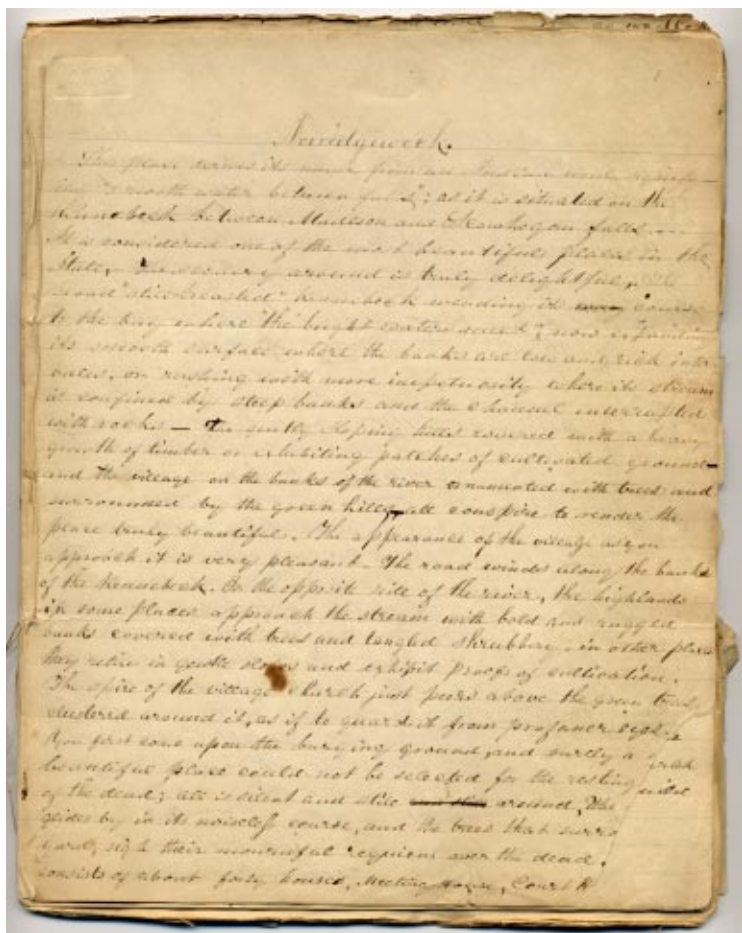 Norridgewock.
This place derives its name from an Indian word signify-
ing "smooth water between falls"; as it is situated on the
Kennebeck between Madison and Skowhegan falls.
It is considered one of the most beautiful places in the
State, the scenery around is truly delightful. The
"still-breasted" Kennebeck wending its course
to the bay where "the bright waters meet"; now
its smooth surface where the banks are low and rich inter
vales, or rushing with more impetuosity where its stream
is confined by steep banks and the channel interrupted
with rocks — The gently sloping hills covered with a heavy
growth of timber or exhibiting patches of cultivated ground—
and the village on the banks of the river ornamented with trees and
surrounded by the green hills, all conspire to render the
place truly beautiful. The appearance of the village as you
approach it is very pleasant. The road winds along the banks
of the Kennebeck. On the opposite side of the river, the highlands
in some places approach the stream with bold and rugged
banks covered with trees and tangled shrubbery, in other places
they retire in gentle slopes and exhibit proofs of cultivation.
The spire of the village church just peers above the green trees
clustered around it, as if to guard it from profaner
You first come upon the burying ground, and surely a
beautiful place could not be selected for the resting
of the dead; all is silent and still around, The
glides by in its noiseless course, and the trees that surro
yard, sigh their mournful requiem over the dead.
consists of about forty houses, Meeting House, Court H